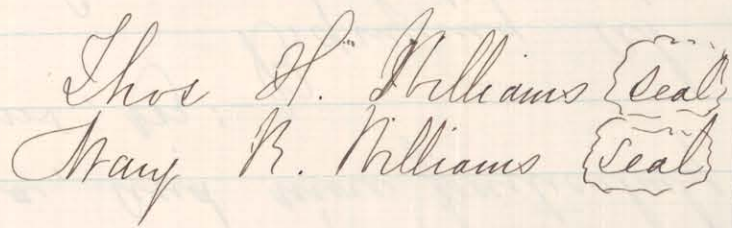 Thos H. Williams Seal
Mary R. Williams Seal